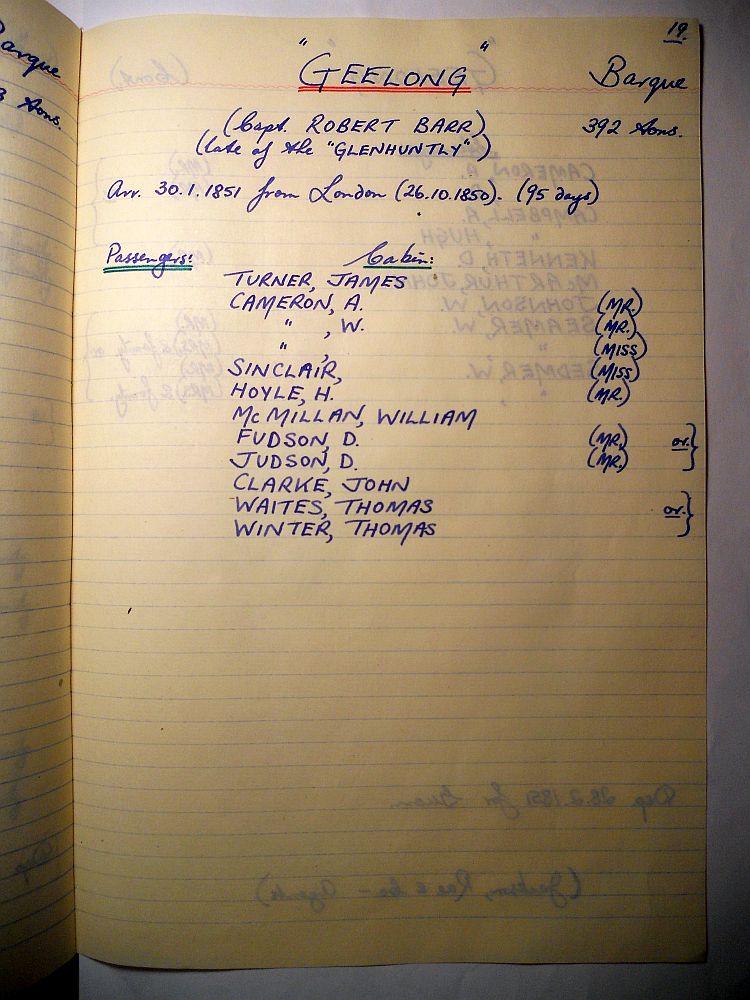 19.
"GEELONG" Barque
(Capt. ROBERT BARR) 392 tons.
(late of the "GLENHUNTLY")
Arr. 30.1.1851 from London (26.10.1850). (95 days)
Passengers: Cabin:
TURNER, JAMES
CAMERON, A. (MR.)
" , W. (MR.)
" , (MISS)
SINCLAIR, (MISS)
HOYLE, H. (MR.)
McMILLAN, WILLIAM
FUDSON, D. (MR.) or. }
JUDSON, D. (MR.)
CLARKE, JOHN
WAITES, THOMAS or. }
WINTER, THOMAS
Barque
tons.